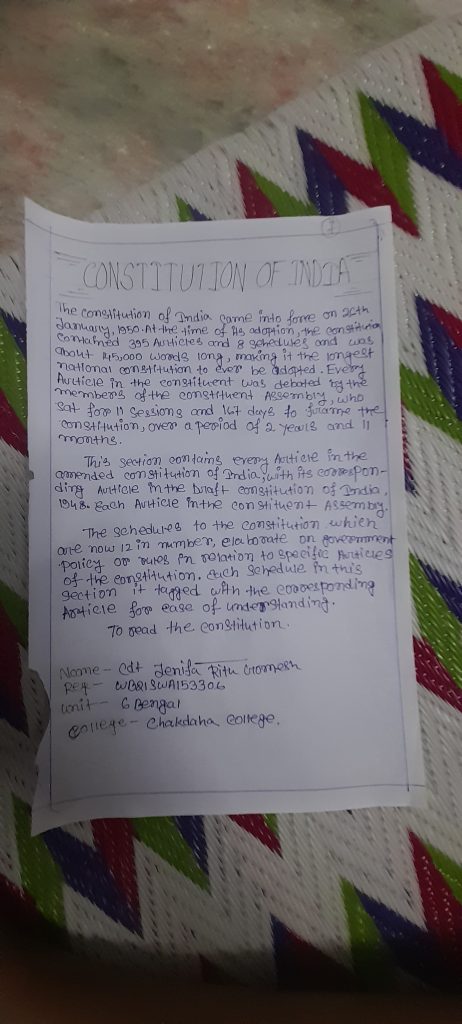 1
CONSTITUTION OF INDIA
The constitution of India came into force on 26th
January, 1950. At the time of its adoption, the constitution
contained 395 Articles and 8 schedules and was
about 145,000 words long, making it the longest
national constitution to ever be adopted. Every
Article in the constituent was debated by the
members of the constituent Assembly, who
sat for 11 Sessions and 167 days to frame the
constitution, over a period of 2 years and 11
months.
This section contains every Article in the
amended constitution of India, with its correspon-
ding Article in the Draft constitution of India,
1948. Each Article in the constituent Assembly.
The schedules to the constitution which
are now 12 in number, elaborate on government
policy or rules in relation to specific Articles
of the constitution. Each schedule in this
section it tagged with the corresponding
Article for ease of understanding.
To read the constitution.
Name - Cdt Jenifa Ritu Gomesh
Reg - WB21SWA153306
Unit - 6 Bengal
College - Chakdaha College.